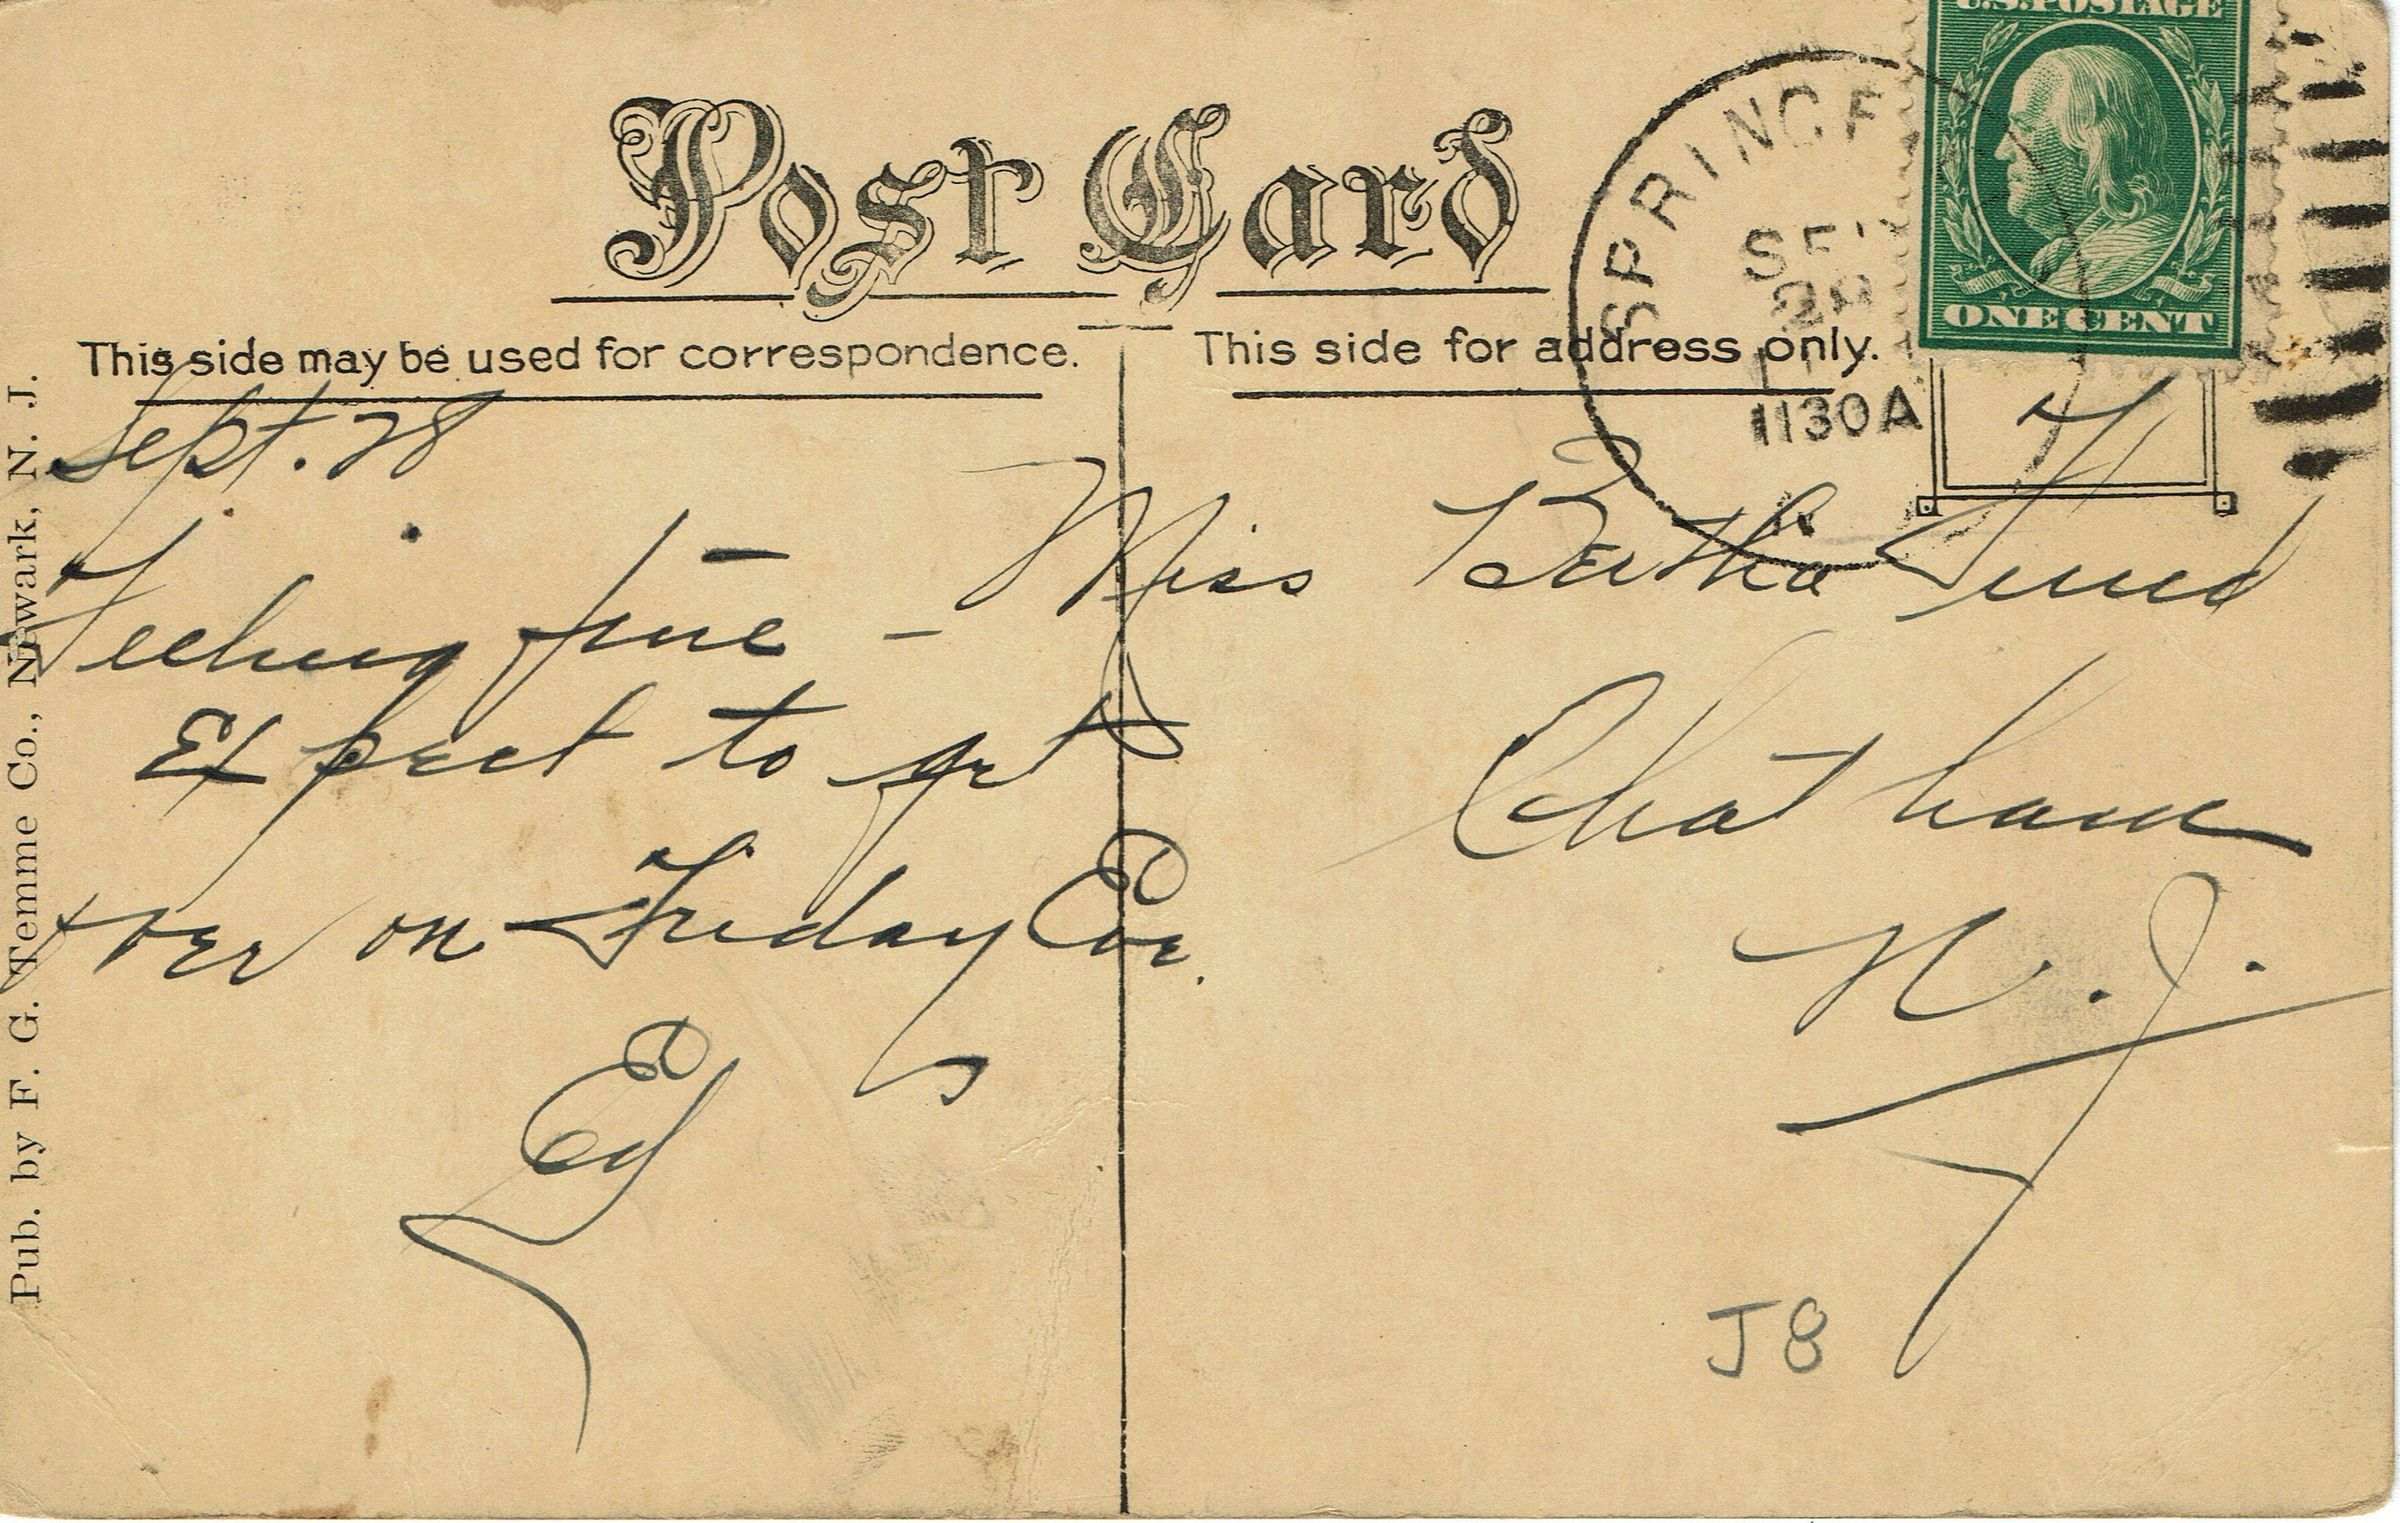 Post Card
This side may be used for correspondence.
This side for address only.
U.S. POSTAGE
ONE CENT
SPRINGF
SEP
28
1130A
Sept. 28
Feeling fine –
Expect to get
over on Friday Eve.
Ed
Miss Bertha
Chatham
N. J.
J8
Pub. by F. G. Temme Co., Newark, N. J.